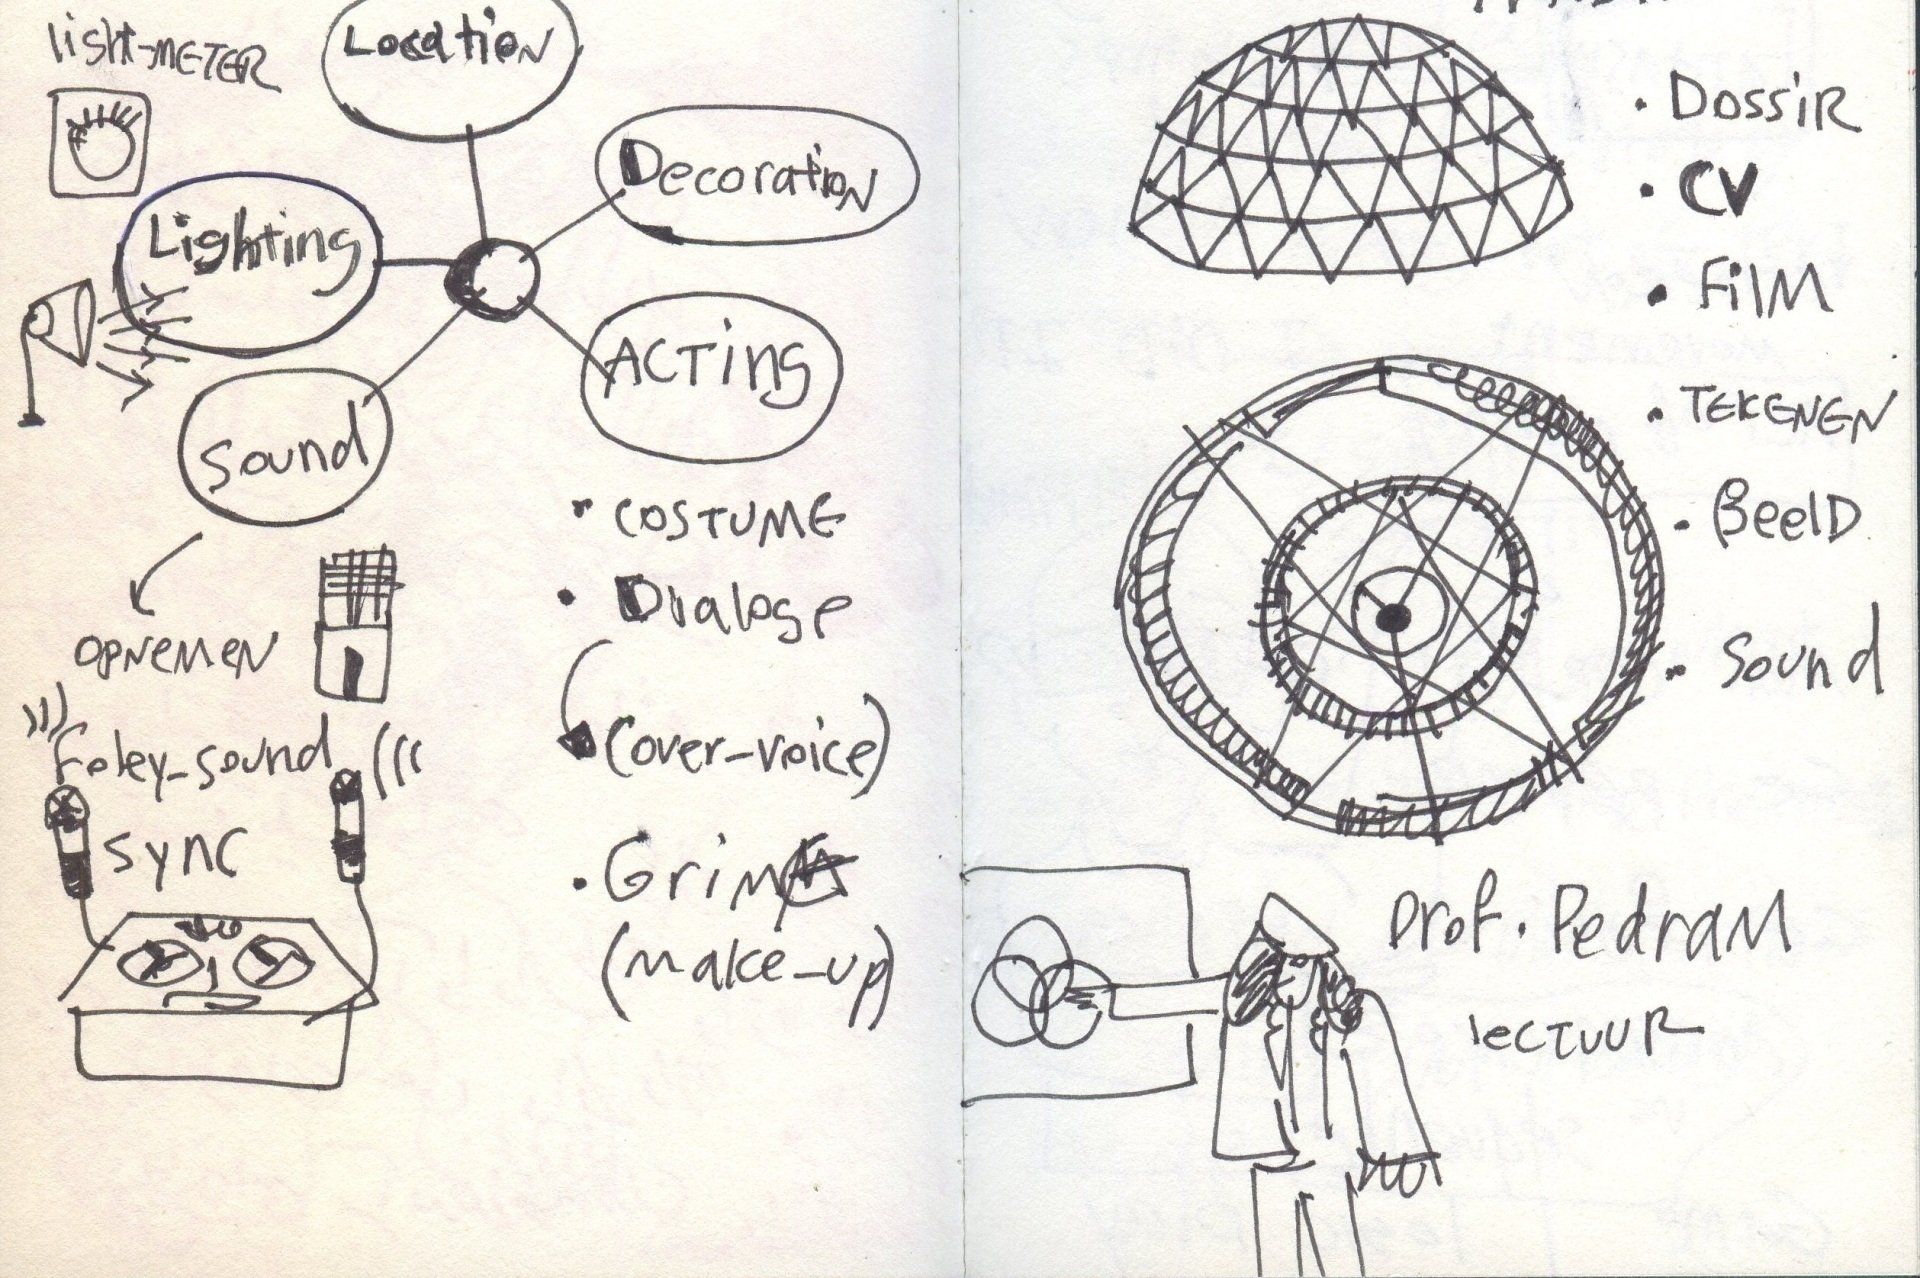 light-METER
Location
Decoration
Lighting
ACTING
Sound
OPNEMEN
Foley_sound
SYNC
• COSTUME
• Dialoge
(over-voice)
(make-up)
• DOSSIR
• CV
• FILM
• TEKENEN
• BeelD
• Sound
Prof. PedraM
lECTUUR